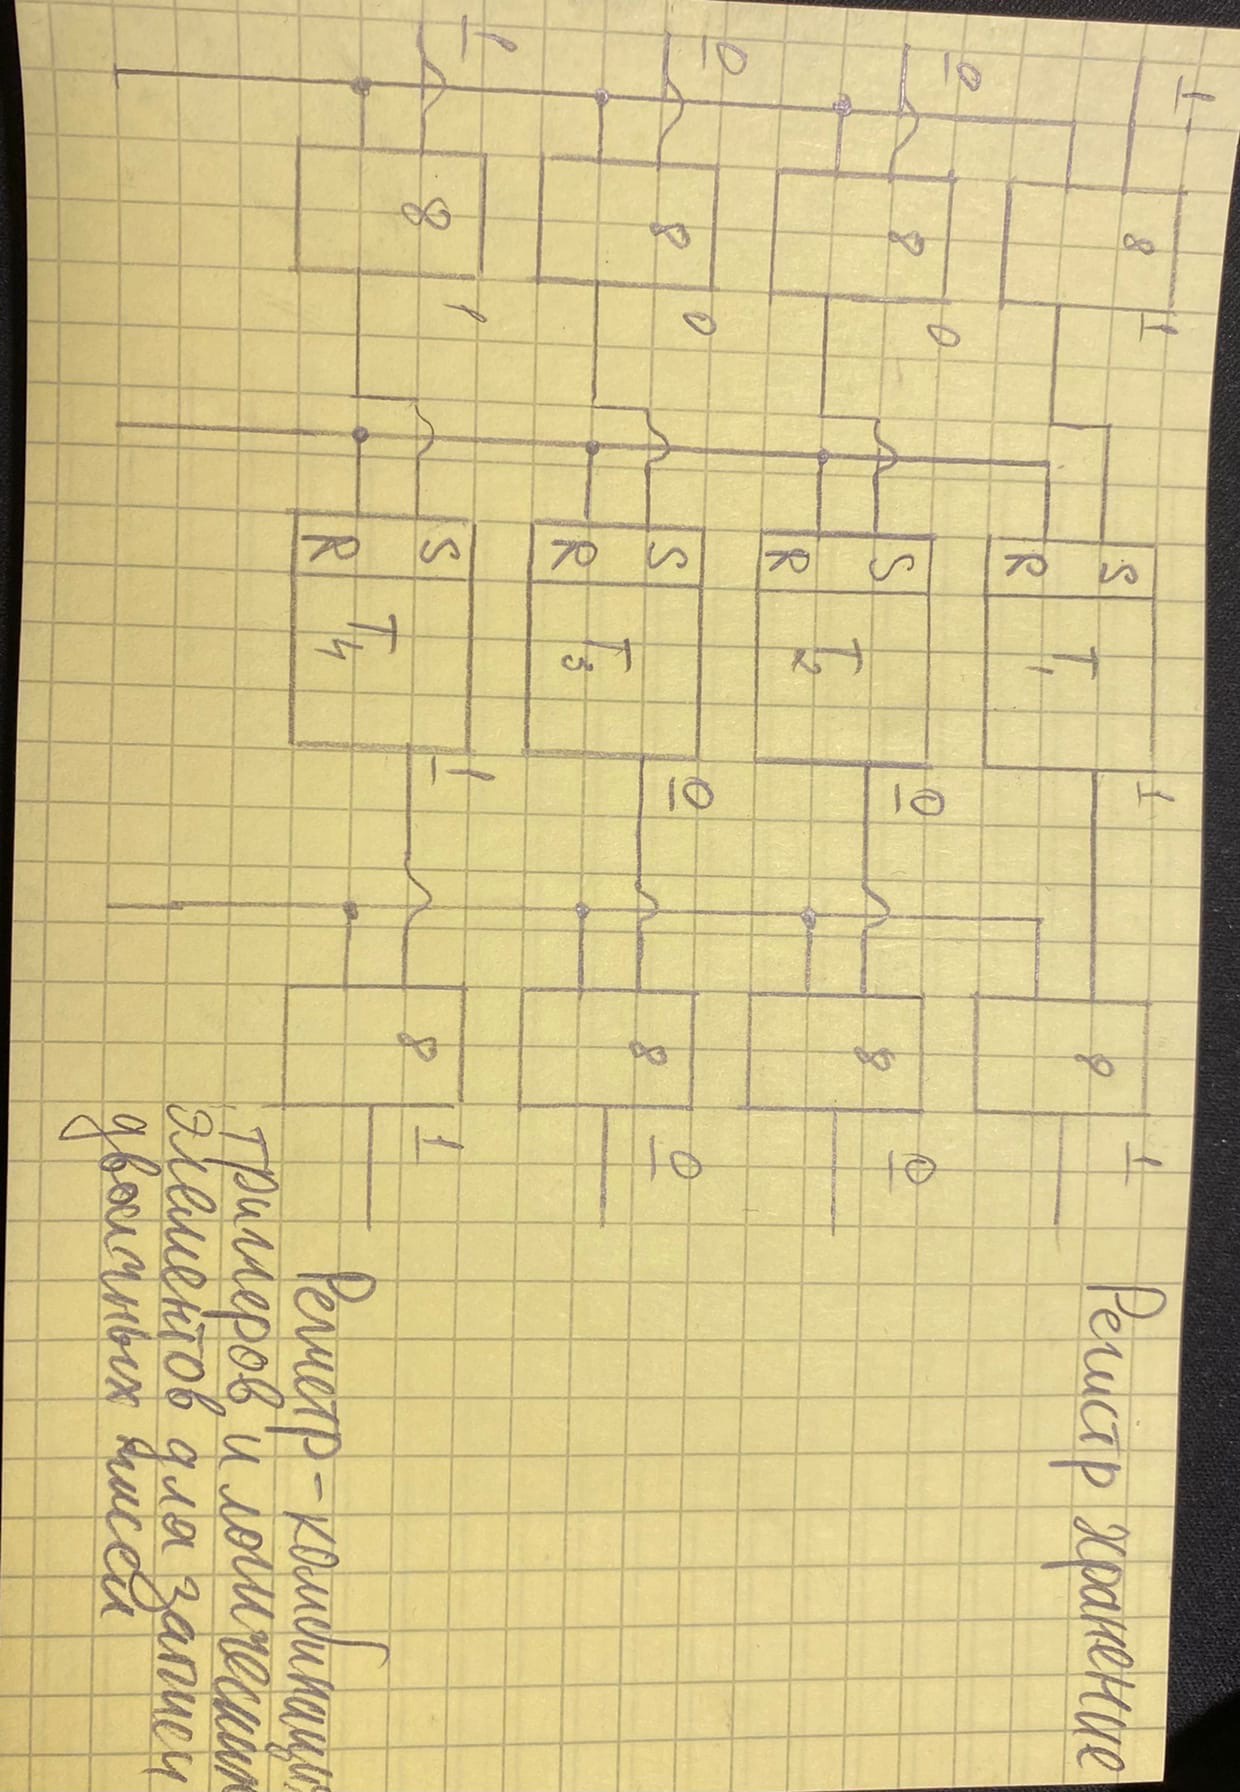 1 8 1 S T1 1 8 1 Регистр хранение
R
0 8 0 S T2 0 8 0
R
0 8 0 S T3 0 8 0
R
1 8 1 S T4 1 8 1
R
Регистр - комбинация
триггеров и логических
элементов для записи
двоичных чисел